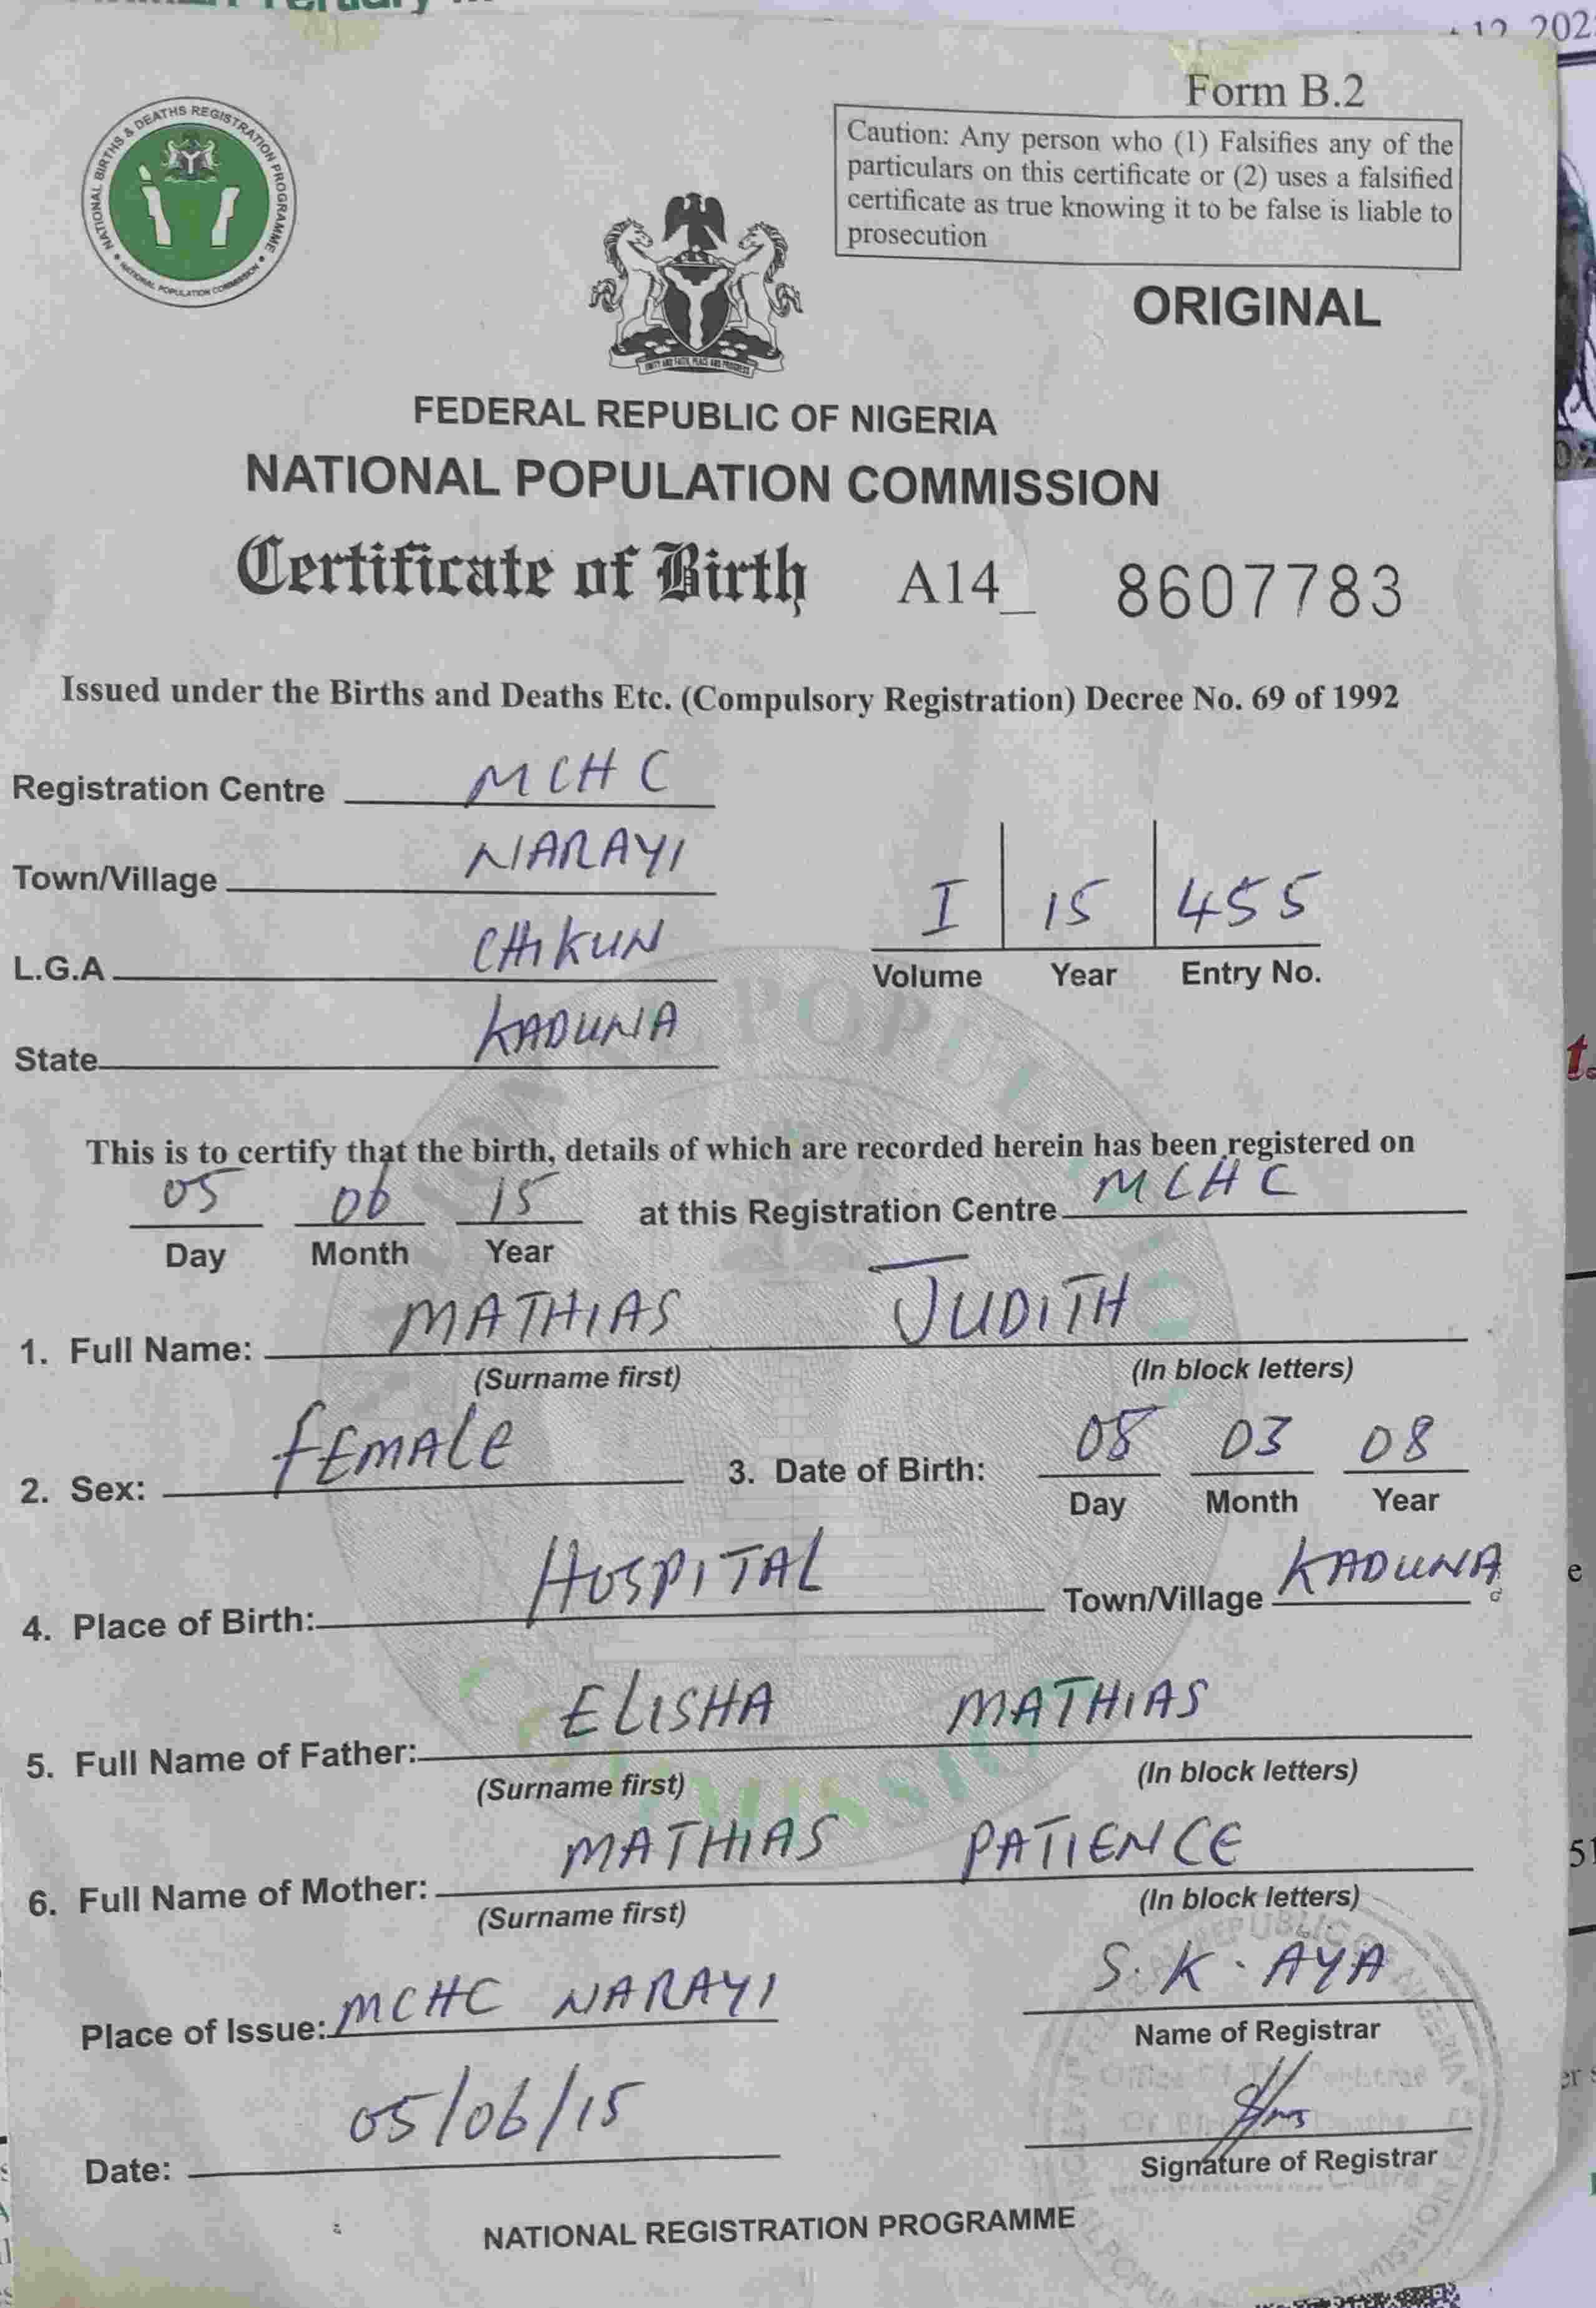 12, 202
Form B.2
Caution: Any person who (1) Falsifies any of the
particulars on this certificate or (2) uses a falsified
certificate as true knowing it to be false is liable to
prosecution
NATIONAL BIRTHS & DEATHS REGISTRATION PROGRAMME
NATIONAL POPULATION COMMISSION
ORIGINAL
UNITY AND FAITH, PEACE AND PROGRESS
FEDERAL REPUBLIC OF NIGERIA
NATIONAL POPULATION COMMISSION
Certificate of Birth A14_ 8607783
Issued under the Births and Deaths Etc. (Compulsory Registration) Decree No. 69 of 1992
Registration Centre MCHC
Town/Village NARAYI
L.G.A CHIKUN
State KADUNA
I 15 455
Volume Year Entry No.
This is to certify that the birth, details of which are recorded herein has been registered on
05 06 15 at this Registration Centre MCHC
Day Month Year
1. Full Name: MATHIAS JUDITH
(Surname first) (In block letters)
2. Sex: FEMALE 3. Date of Birth: 08 03 08
Day Month Year
4. Place of Birth: HOSPITAL Town/Village KADUNA
5. Full Name of Father: ELISHA MATHIAS
(Surname first) (In block letters)
6. Full Name of Mother: MATHIAS PATIENCE
(Surname first) (In block letters)
Place of Issue: MCHC NARAYI S. K. AYA
Name of Registrar
Date: 05/06/15
Signature of Registrar
NATIONAL REGISTRATION PROGRAMME